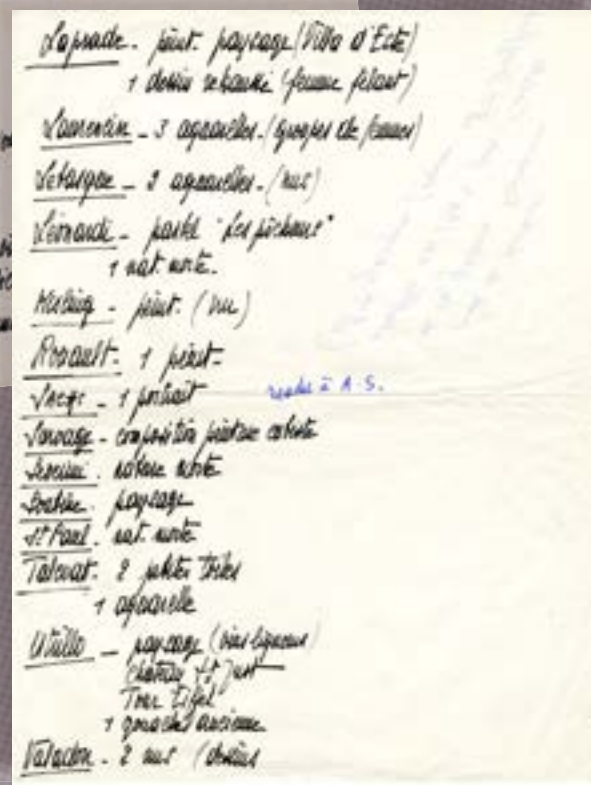 Laprade - peint. paysage (Villa d'Este)
1 dessin rehaussé (femme filant)
Laurencin - 3 aquarelles - (groupes de femmes)
Lebasque - 2 aquarelles - (nus)
Léonardi - pastel "Les pêcheurs"
1 nat. morte.
Kisling - peint. (nu)
Rouault - 1 peint.
1 portrait
rendu à A.S.
Survage - composition peinture cubiste
Severini - nature morte
Soutine - paysage
St Paul - nat. morte
2 petites toiles
1 aquarelle
Utrillo - paysage
Château St Just
Tour Eiffel
1 gouache ancienne
Valadon - 2 nus (dessins